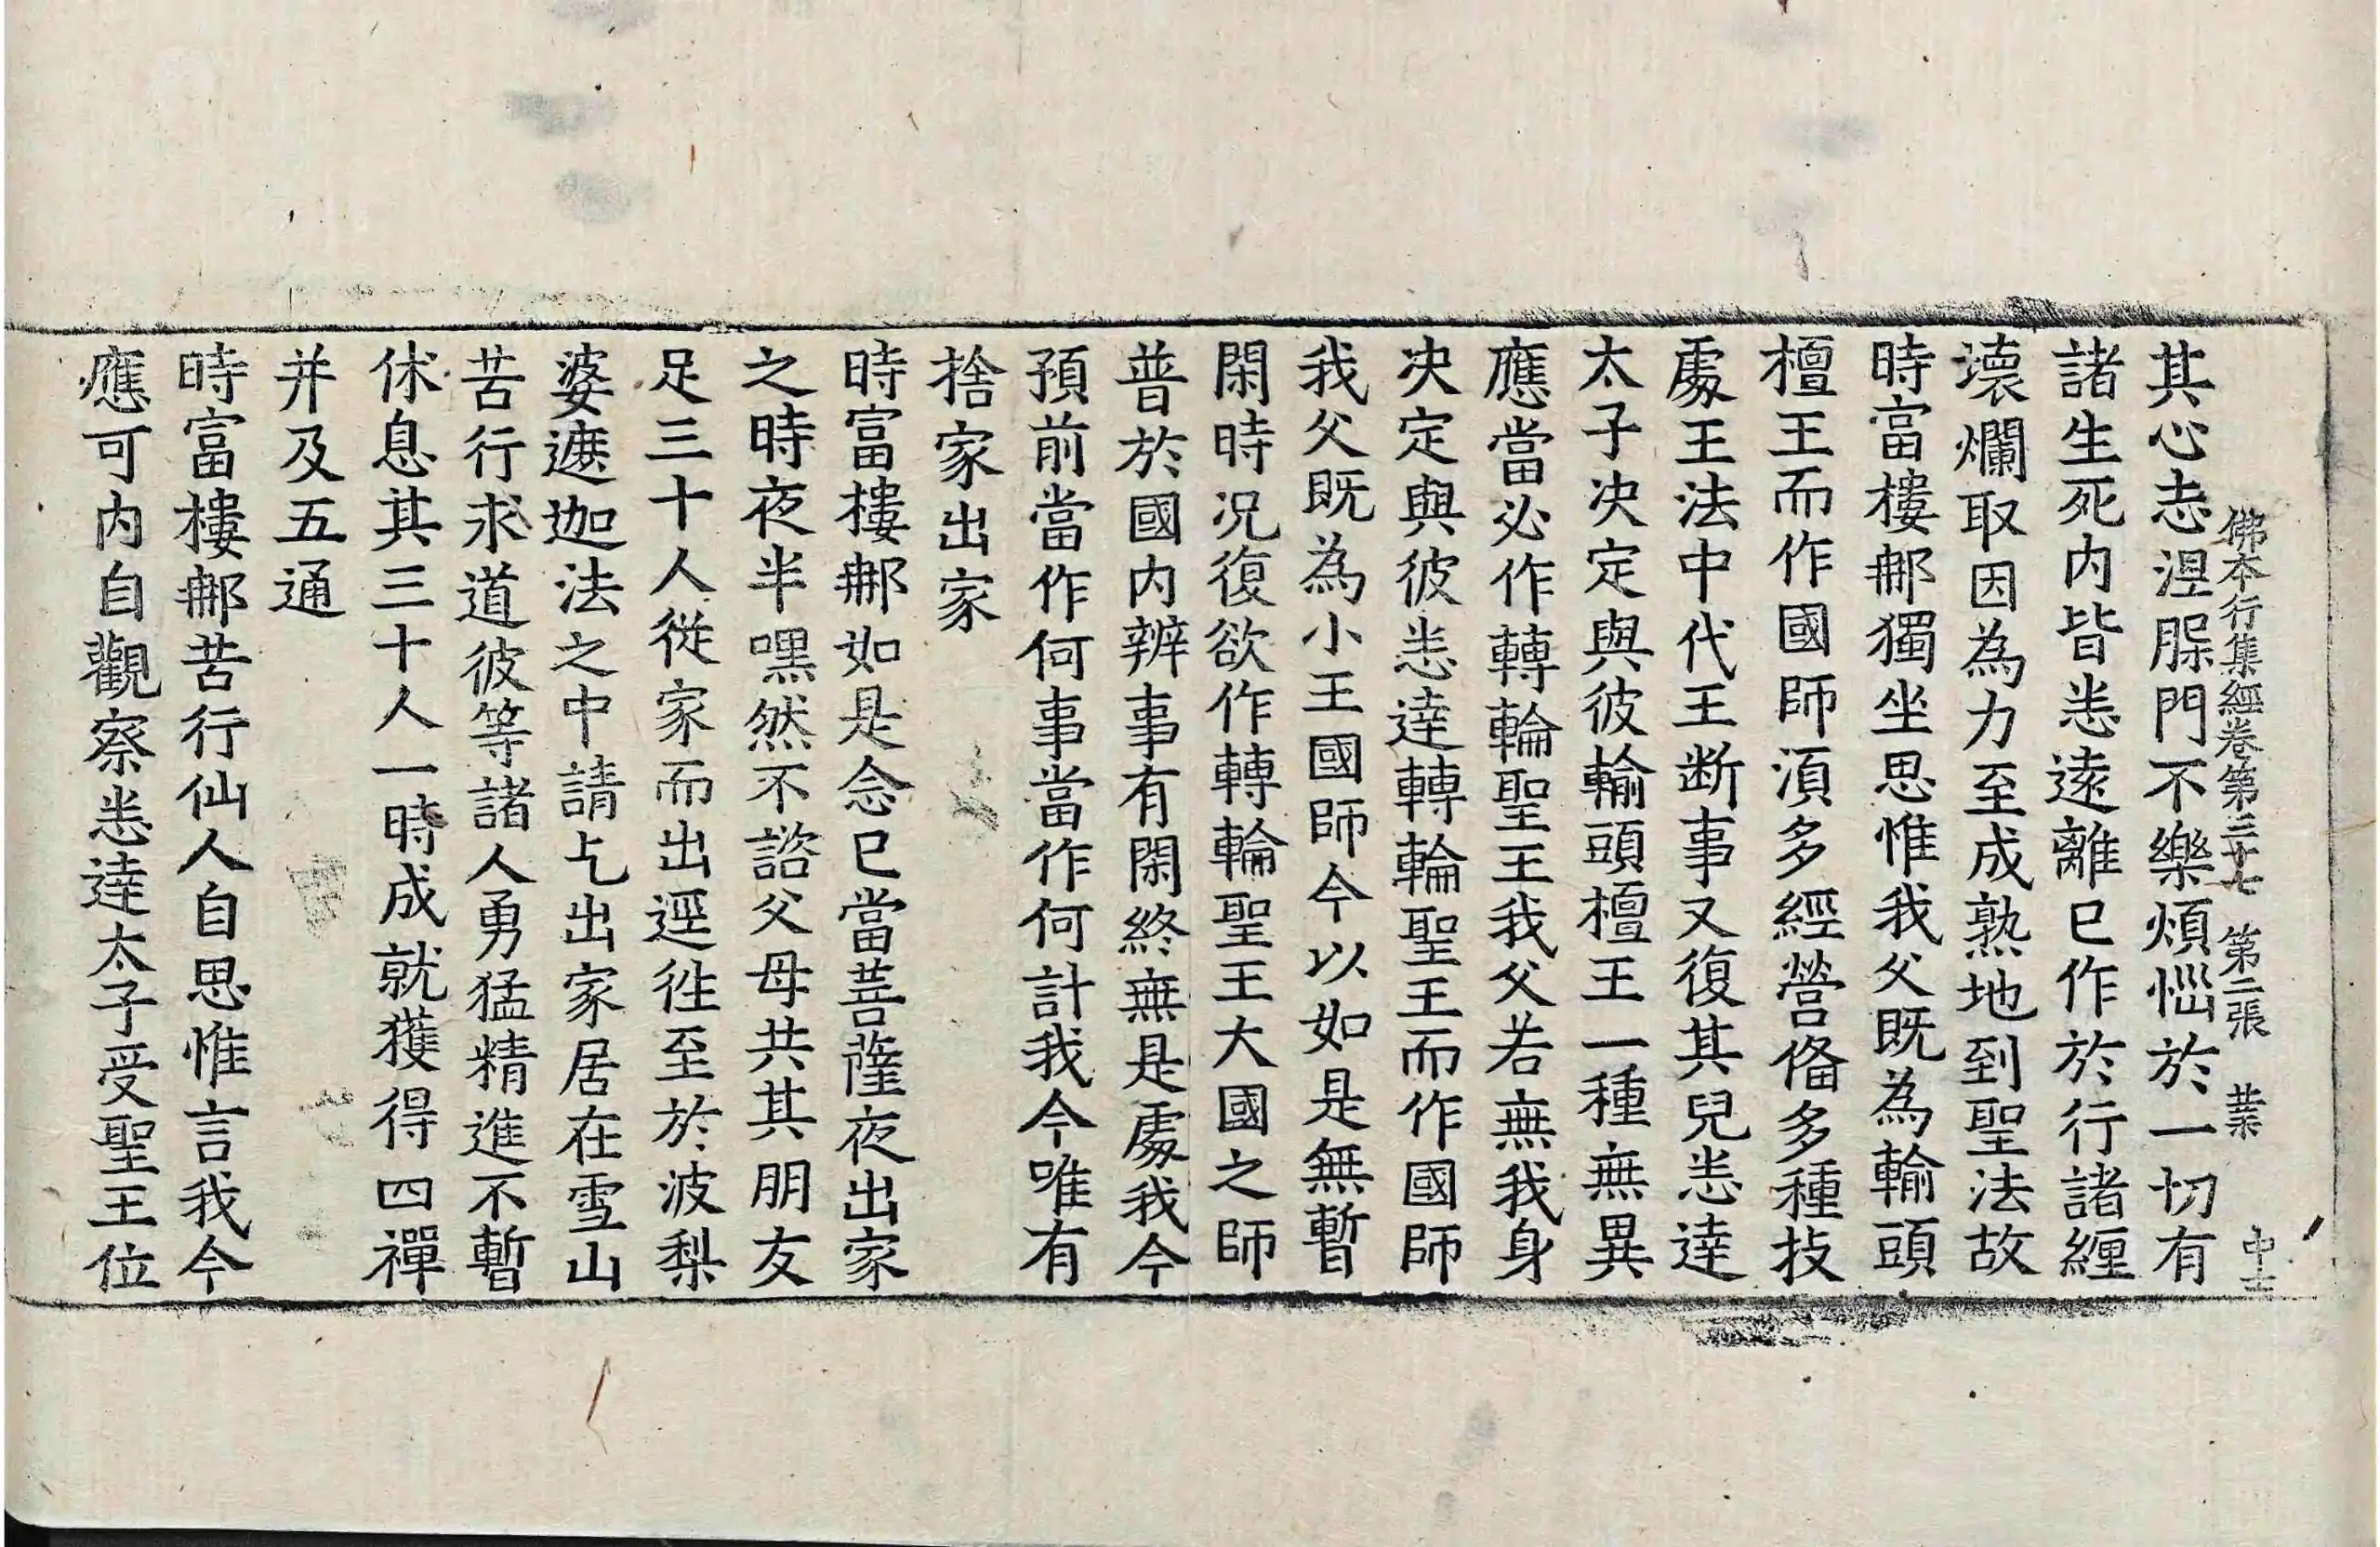 佛本行集經卷第三十七 第二張 業 中士
其心志涅脲門不樂煩惱於一切有
諸生死内皆恙遠離已作於行諸纏
壊爛取因為力至成熟地到聖法故
時富樓𨚗獨坐思惟我父既為輸頭
檀王而作國師湏多經營俻多種技
處王法中代王断事又復其兒恙逹
太子决定與彼輸頭檀王一種無異
應當必作轉輪聖王我父若無我身
决定與彼恙逹轉輪聖王而作國師
我父既為小王國師今以如是無暫
閑時况復欲作轉輪聖王大國之師
普於國内辦事有閑終無是處我今
預前當作何事當作何計我今唯有
捨家出家
時富樓𨚗如是念已當菩薩夜出家
之時夜半嘿然不諮父母共其朋友
足三十人從家而出逕徃至於波梨
婆遮迦法之中請乞出家居在雪山
苦行求道彼等諸人勇猛精進不暫
休息其三十人一時成就獲得四禪
并及五通
時富樓𨚗苦行仙人自思惟言我今
應可内自觀察恙逹太子受聖王位